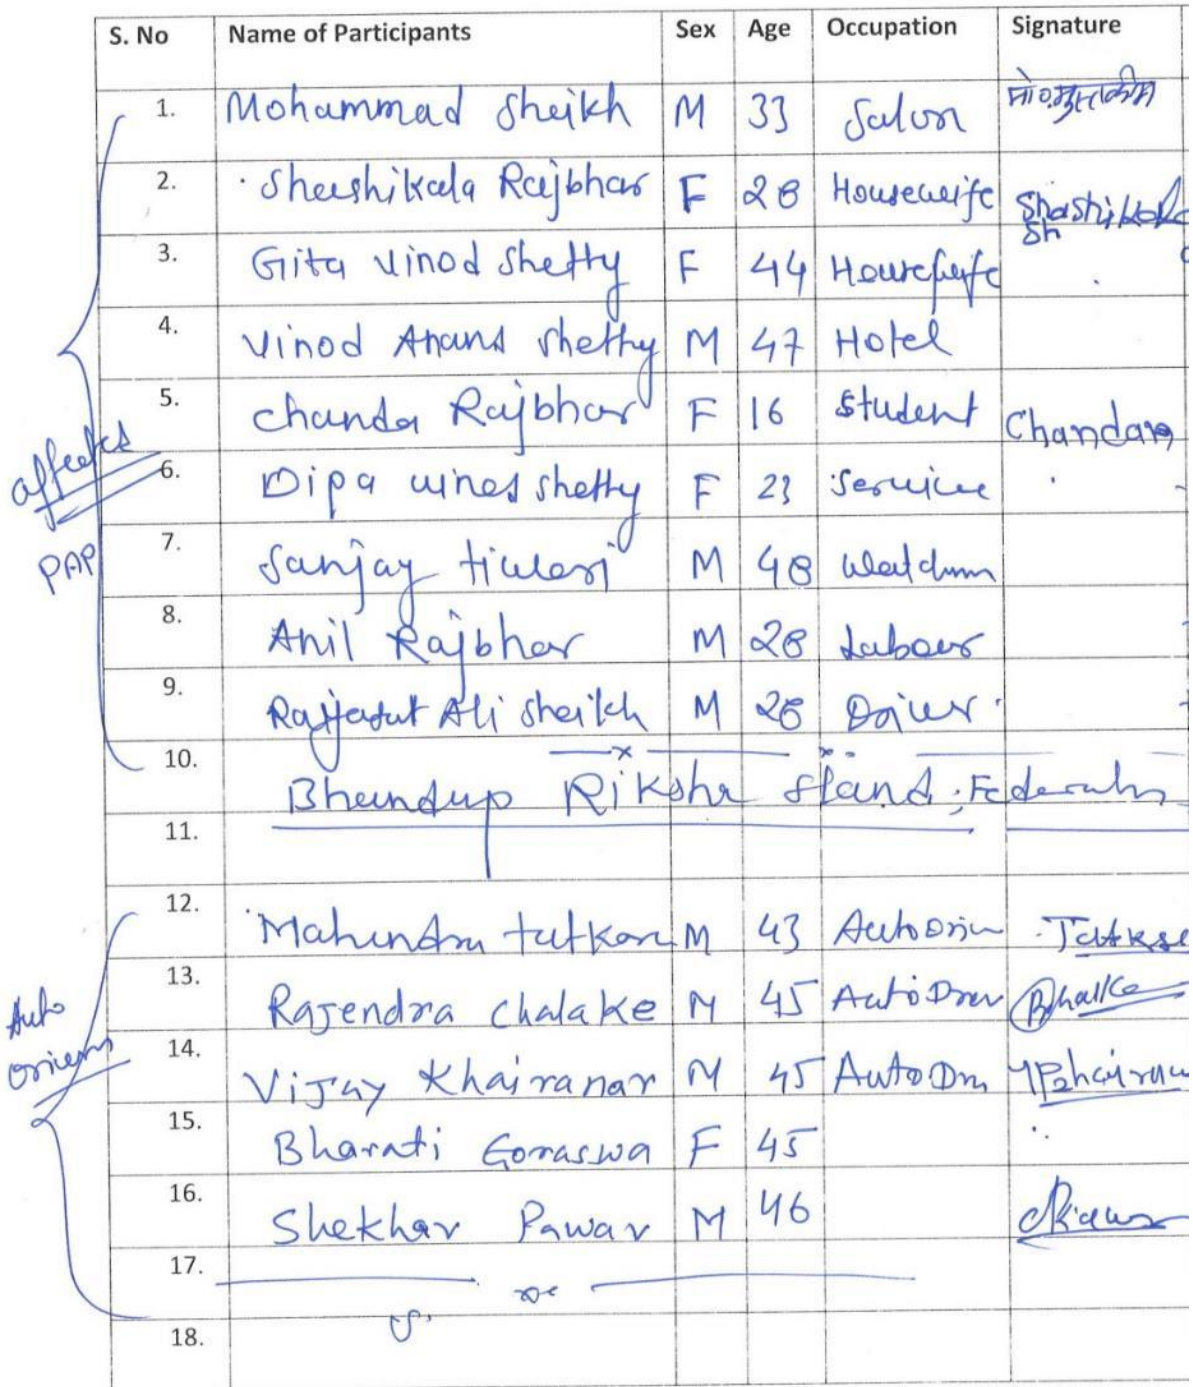 S. No Name of Participants Sex Age Occupation Signature
1. Mohammad Sheikh M 33 Salon
2. Shashikala Rajbhar F 28 Housewife Shashikala
Sh
3. Gita Vinod Shetty F 44 Housewife
4. Vinod Anand Shetty M 47 Hotel
5. Chanda Rajbhar F 16 Student Chandan
affected
6. Dipa Shetty F 23 Service
PAP
7. Sanjay Tiwari M 48 Watchman
8. Anil Rajbhar M 28 Labour
9. Ali Sheikh M 28 Driver
10.
Bhandup Riksha Stand,
11.
12. Mahendra Tatkare M 43 Auto Driv
13. Rajendra Chalake M 45 Auto Driver
Auto
Drivers
14. Vijay Khairanar M 45 Auto Drn
15. Bharati Goraswa F 45
16. Shekhar Pawar M 46
17.
18.